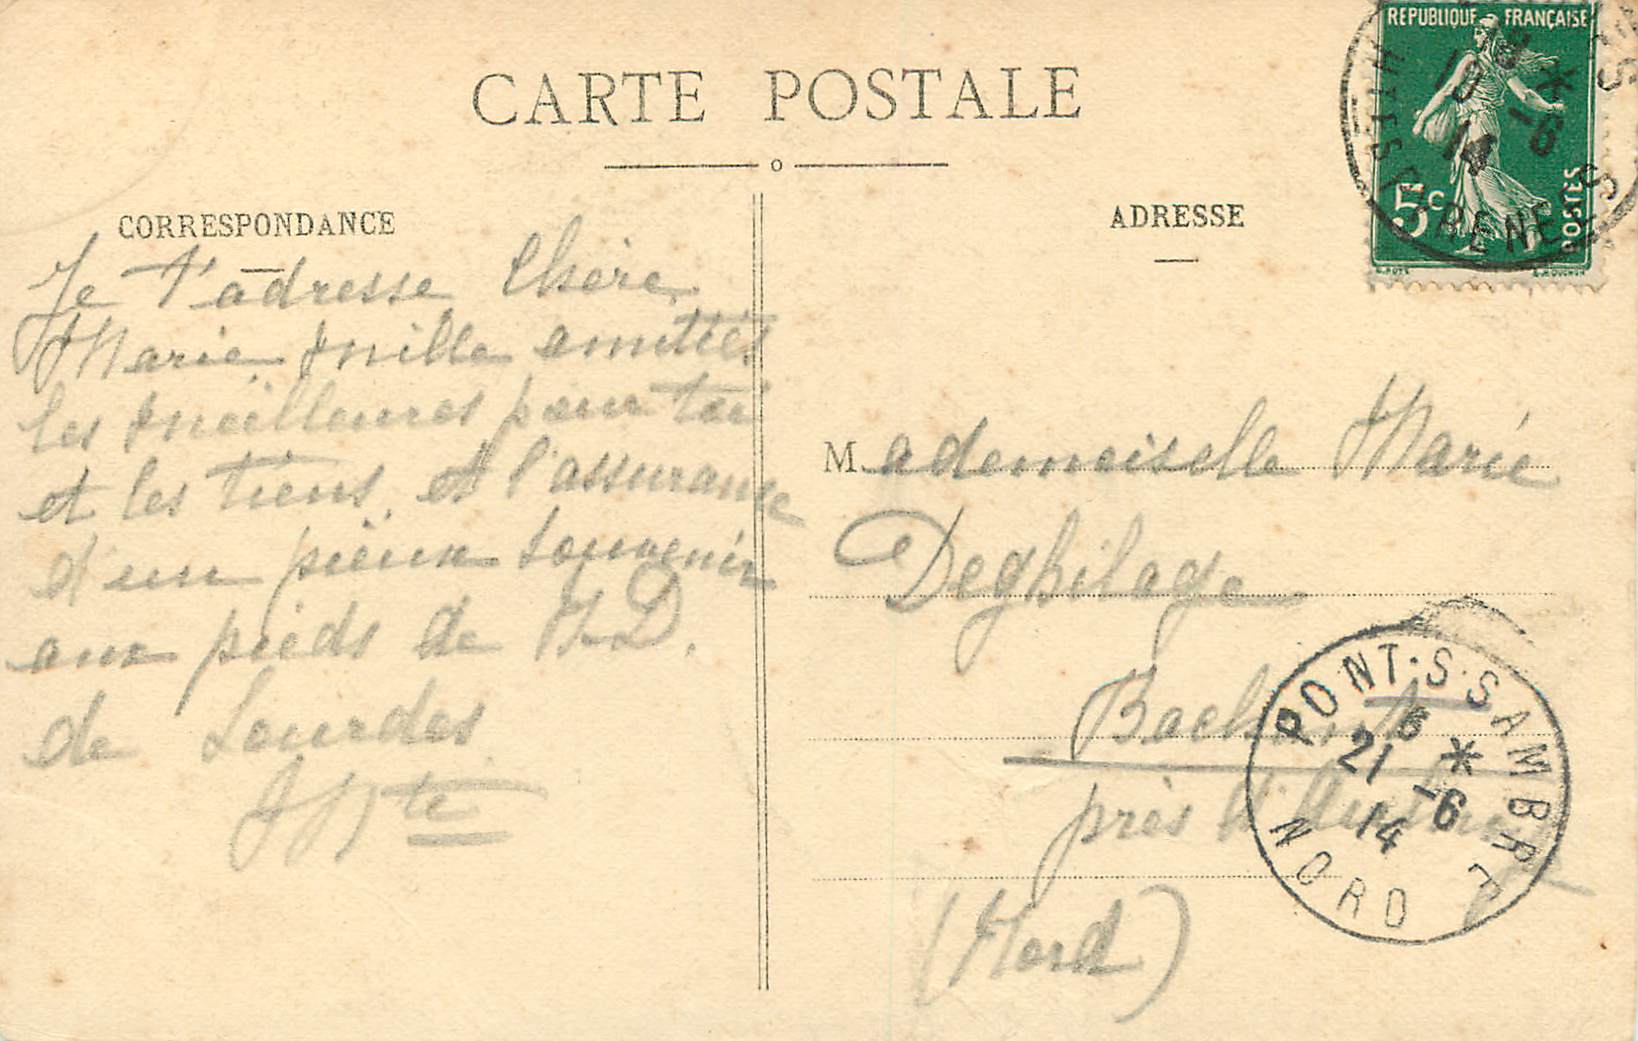 CARTE POSTALE
CORRESPONDANCE
Je t'adresse Chère
Marie mille amitiés
les meilleures pour toi
et les tiens. et l'assurance
d'un pieux souvenir
aux pieds de N. D.
de Lourdes
ADRESSE
REPUBLIQUE FRANÇAISE
5c
POSTES
HTES PYRENEES
19 -6
14
Mademoiselle Marie
Deghilage
Bachant
près d'
(Nord)
PONT-S-SAMBRE
6
21 -6
14
NORD